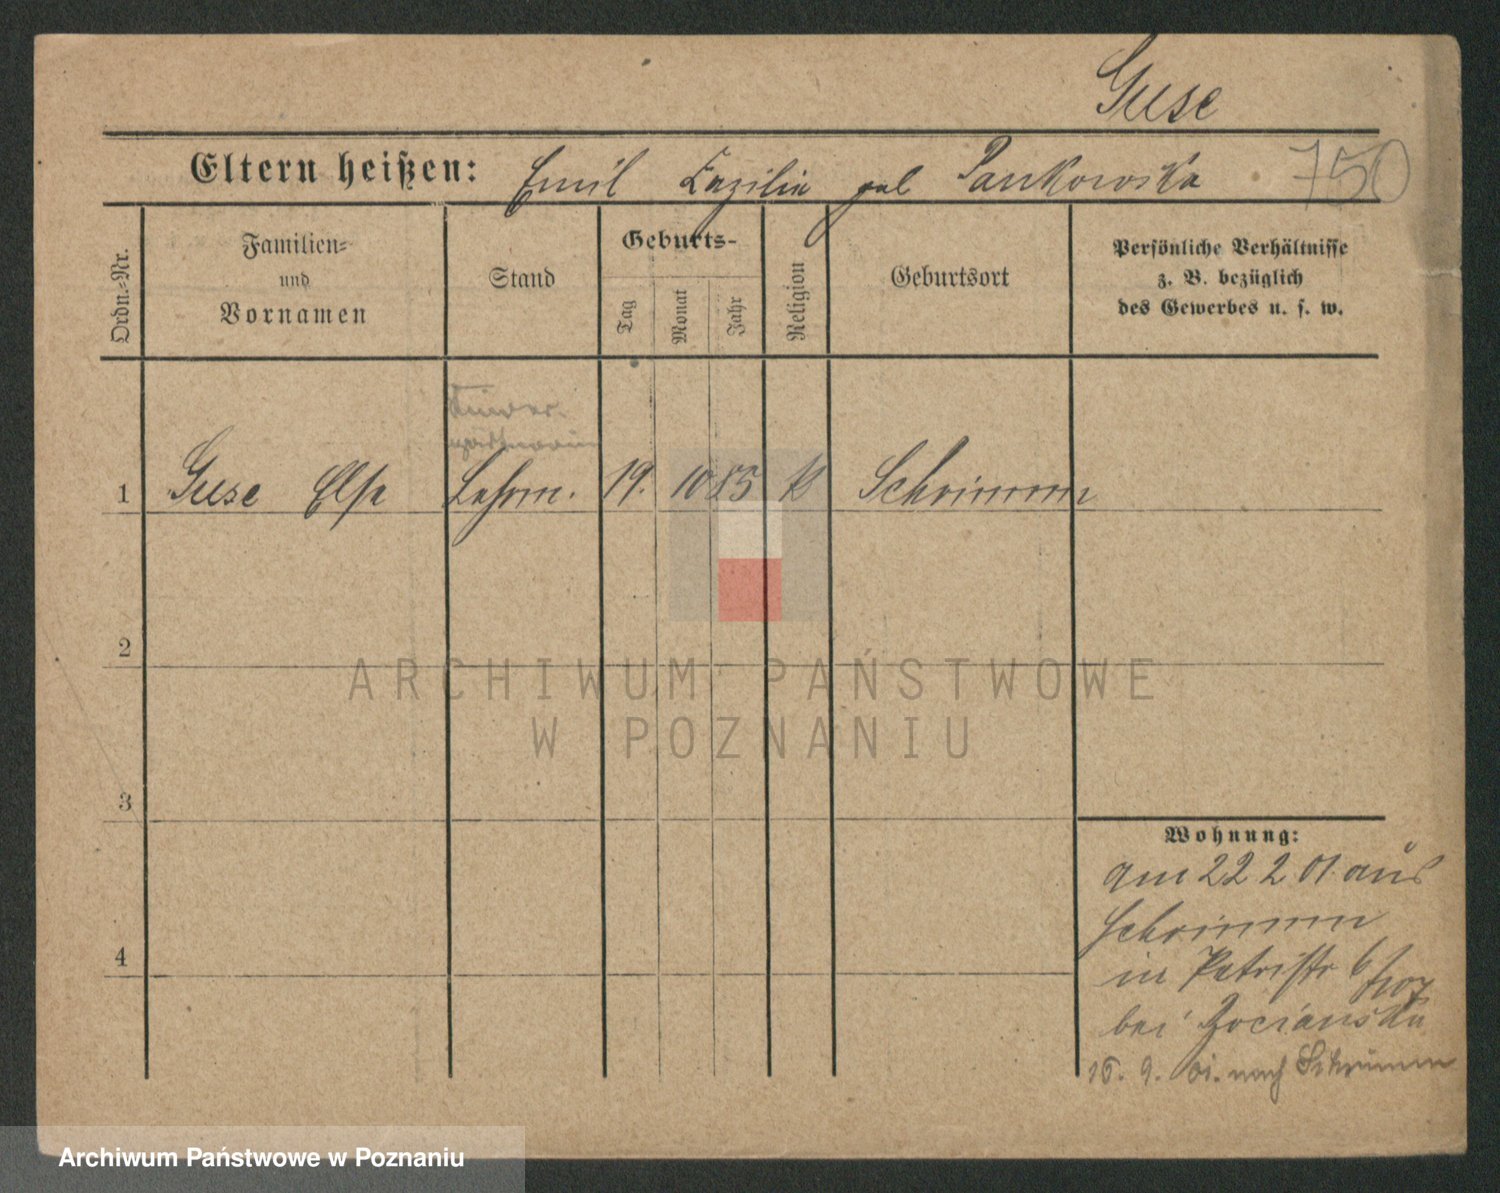 Guse
Eltern heißen: Emil Cäzilie geb Pankowska 750
Ordn.-Nr.
Familien-
und
Vornamen
Stand
Geburts-
Tag
Monat
Jahr
Religion
Geburtsort
Persönliche Verhältnisse
z. B. bezüglich
des Gewerbes u. s. w.
Kinder-
gärtnerin
1 Guse Else Lehrin. 19. 10 85 k Schrimm
2
3
4
Wohnung:
am 22 2 01. aus
Schrimm
in Petristr 6
bei
16. 9. 01. nach Schrimm
ARCHIWUM PAŃSTWOWE
W POZNANIU
Archiwum Państwowe w Poznaniu